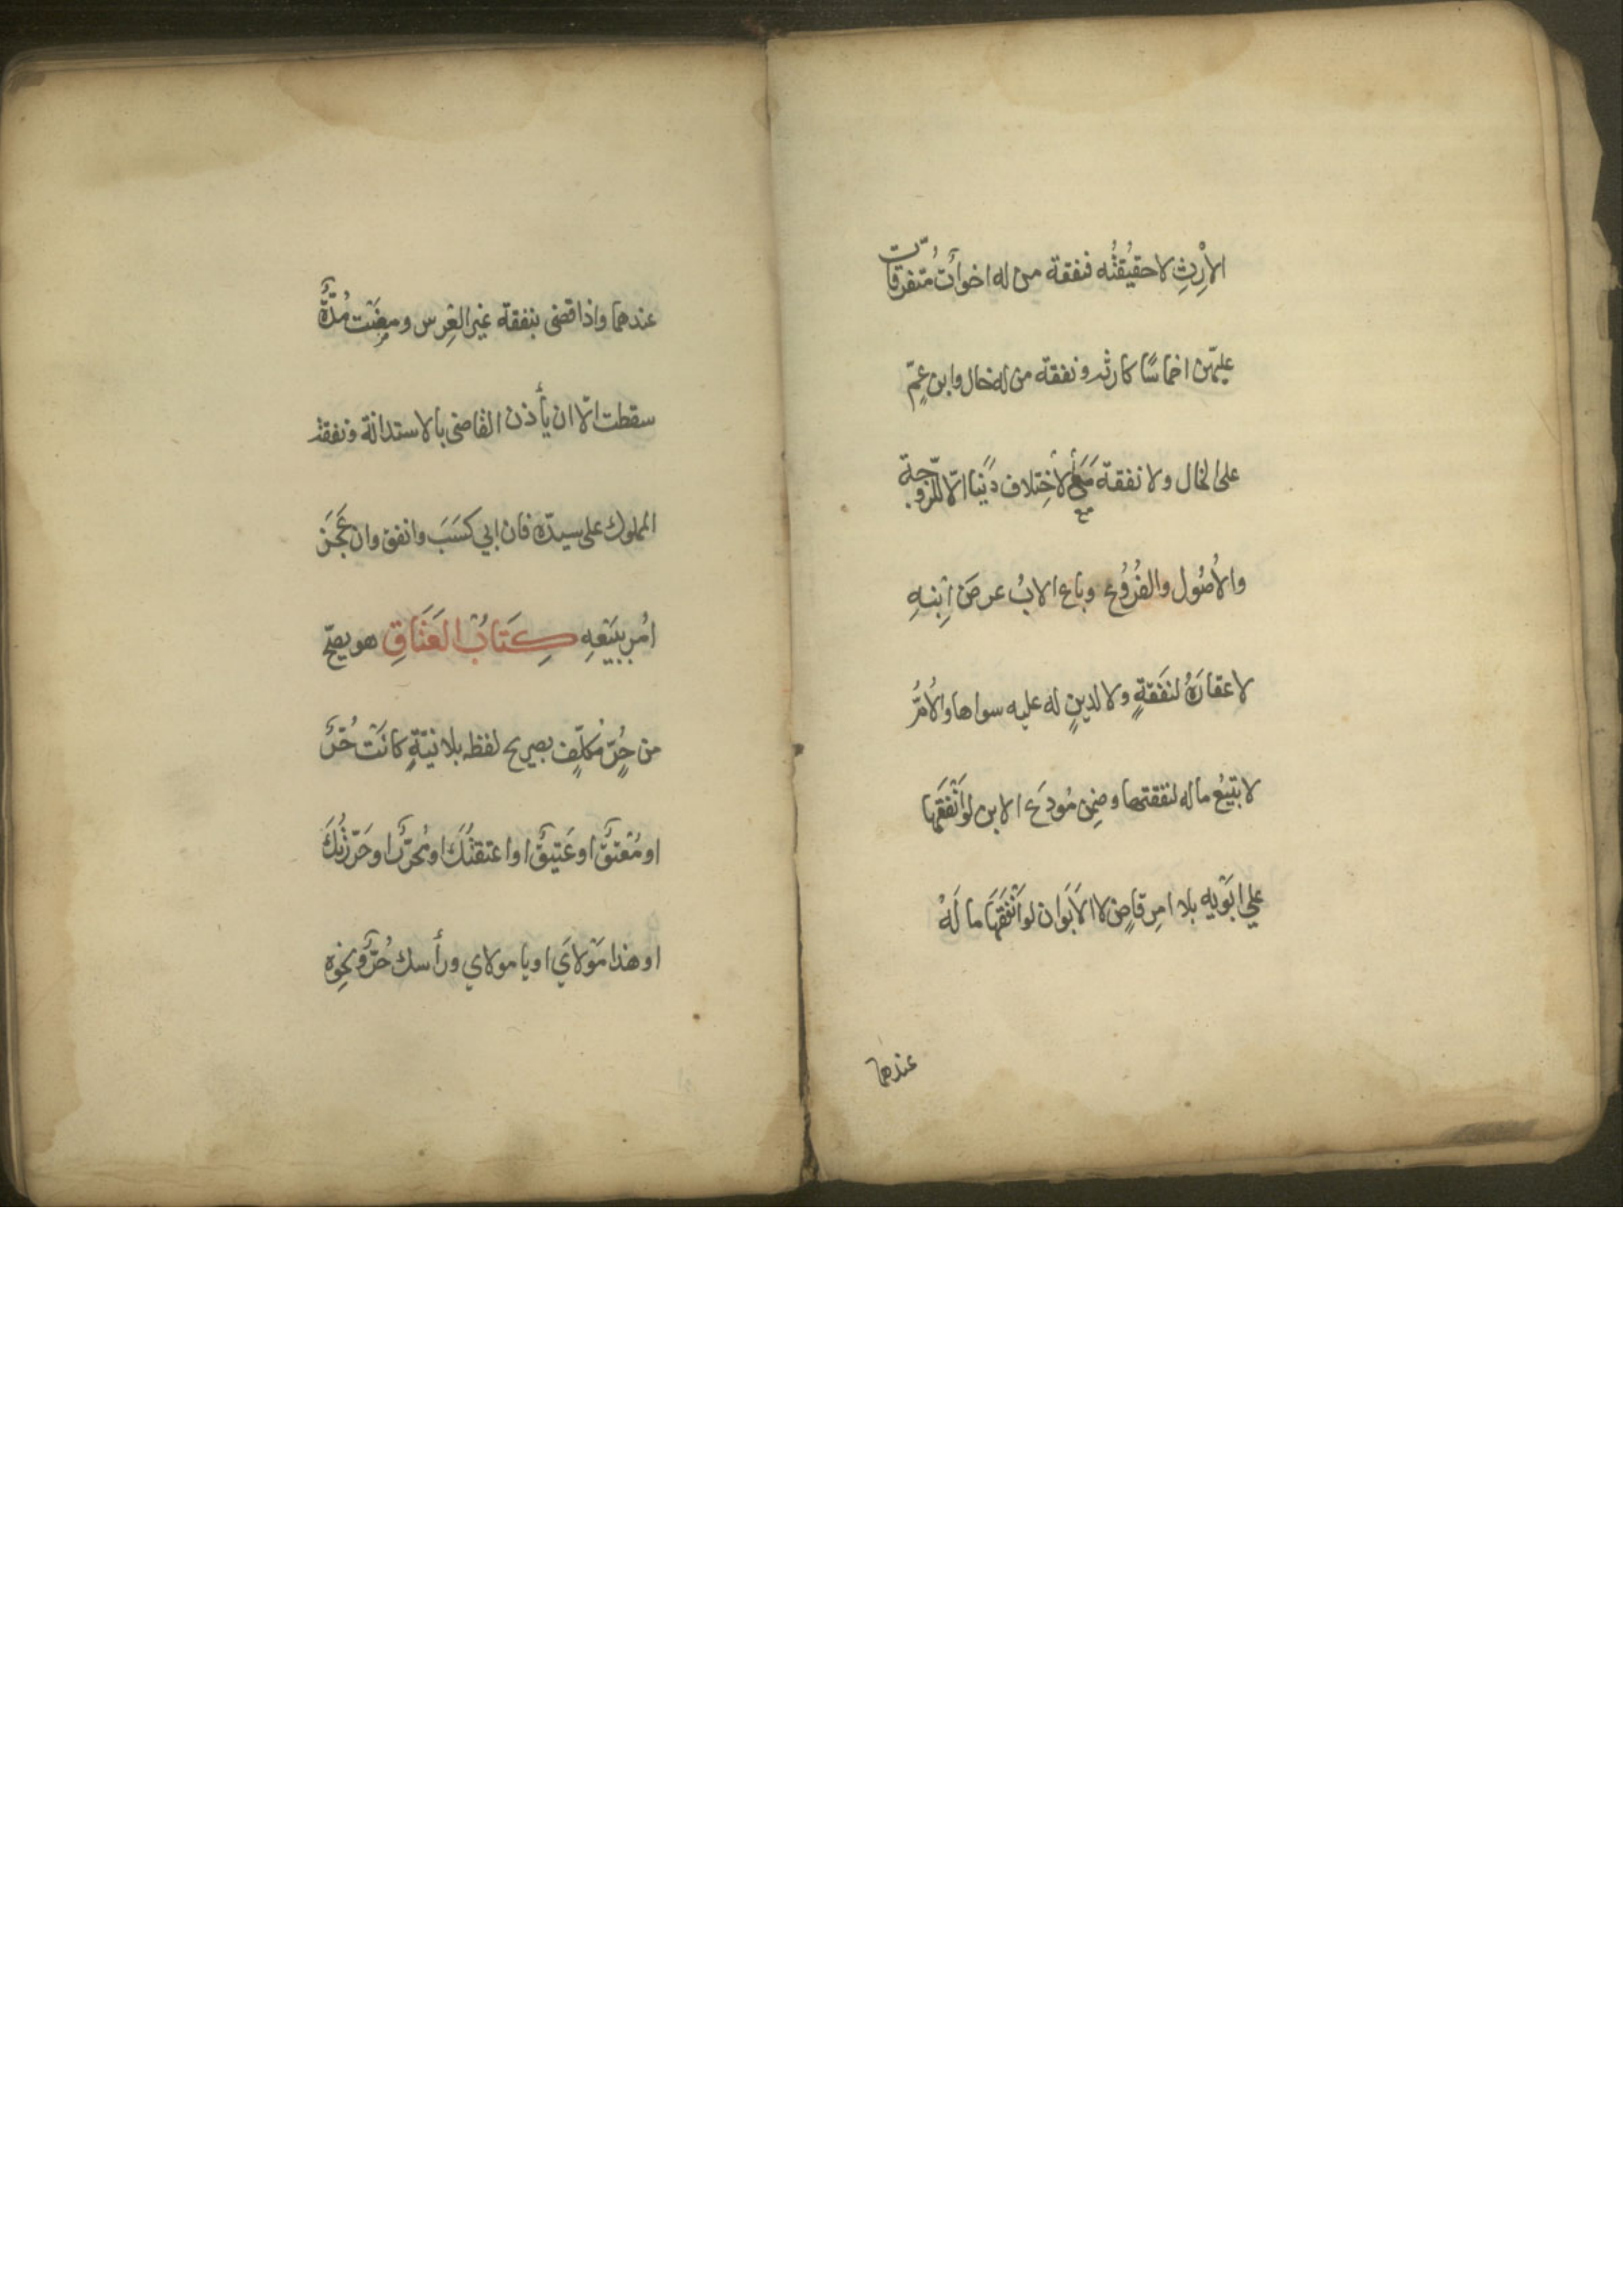 الاِرْثِ لا حقيقتُه فنفقة من له اخوات مُتفرقات
عليهّن اخماسًا كارثه ونفقة من له خال وابن عمّ
على الخال ولا نفقة مَعَ الاختلاف دًينا الّا للزوجة
والاُصُول والفُرُوُع وباع الابُ عرضَ اِبْنِهِ
لا عقارَهُ لنفَقةٍ ولا لدينٍ له عليه سواها والاُمُّ
لا تبَيْعُ ماله لنفقتها وضِمن مُودَع الابن لو اَنْفَقَها
علي ابَوْيه بلا امرِ قاضٍ لا الاَبَوان لو اَنْفَقَهَا مَا لَهُ
عندهما
عندهما واذا قضى بنفقة غير العِرس ومضَتْ مُدّةٌ
سقطت الّا ان يأذن القاضى بالاستدانة ونفقة
المملوك على سيدّه فان ابي كسَبَ وانفق وان عَجَز
اُمر ببَيْعِهِ كِتَابُ العَتَاقِ هو يصحّ
من حُرٍّ مُكلّفٍ بصريح لفظه بلا نيّةٍ كانَتْ حُرٌّ
او مُعْتقٌ او عَتيقٌ او اعتقتُكَ او مُحرّرٌ او حَرّرْتُكَ
او هذا مَوْلايَ او يا مولاي ورأسك حُرٌّ ونحوِه